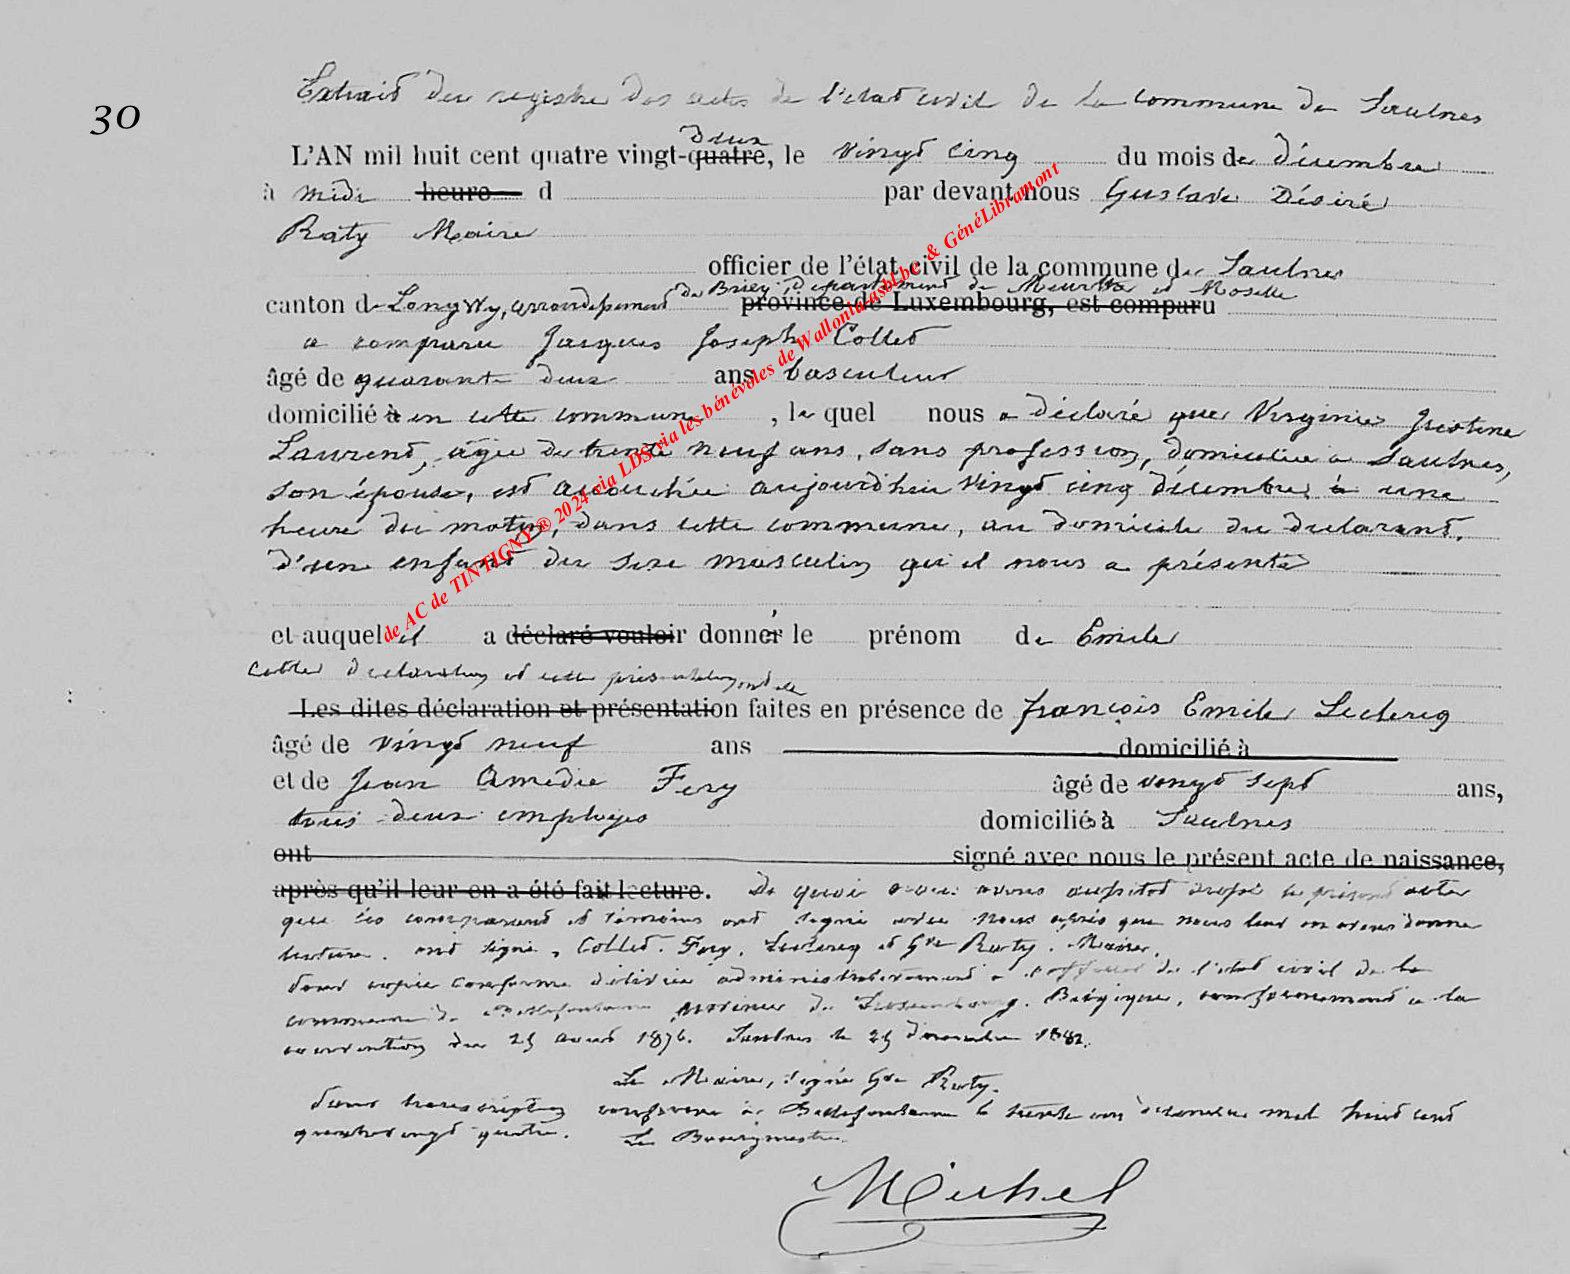 30
Extrait du registre des actes de l'état civil de la commune de Saulnes
deux
L'AN mil huit cent quatre vingt-quatre, le vingt cinq du mois de décembre
à midi heure d par devant nous Gustave Désiré
Raty Maire
officier de l'état civil de la commune de Saulnes
de Briey département de Meurthe et Moselle
canton de Longwy, arrondissement province de Luxembourg, est comparu
a comparu Jacques Joseph Collet
âgé de quarante deux ans basculeur
domicilié à en cette commune, le quel nous a déclaré que Virginie Justine
Laurent, âgée de trente neuf ans, sans profession, domiciliée à Saulnes,
son épouse, est accouchée aujourd'hui vingt cinq décembre à une
heure du matin, dans cette commune, au domicile du déclarant,
d'un enfant du sexe masculin qu'il nous a présenté
et auquel il a déclaré vouloir donner le prénom de Emile
Cette déclaration et cette présentation ont été
Les dites déclaration et présentation faites en présence de françois Emile Leclercq
âgé de vingt neuf ans domicilié à
et de Jean Amédée Fery âgé de vingt sept ans,
tous deux employés domiciliés à Saulnes
ont signé avec nous le présent acte de naissance,
après qu'il leur en a été fait lecture. De quoi nous avons aussitot dressé le présent acte
que les comparant et témoins ont signé avec nous après que nous leur en avons donné
lecture. ont signé, Collet. Fery, Leclercq et Gve Raty. Maire.
Pour copie conforme délivrée administrativement à l'officier de l'état civil de la
commune de Bellefontaine province de Luxembourg. Belgique, conformément à la
convention du 25 août 1876. Saulnes le 25 décembre 1882.
Le Maire, signé Gve Raty.
Pour transcription conforme à Bellefontaine le trente un décembre mil huit cent
quatre vingt quatre. Le Bourgmestre
Michel
de AC de TINTIGNY® 2024 via LDS via les bénévoles de Wallonia asbLbc & GénéLibramont